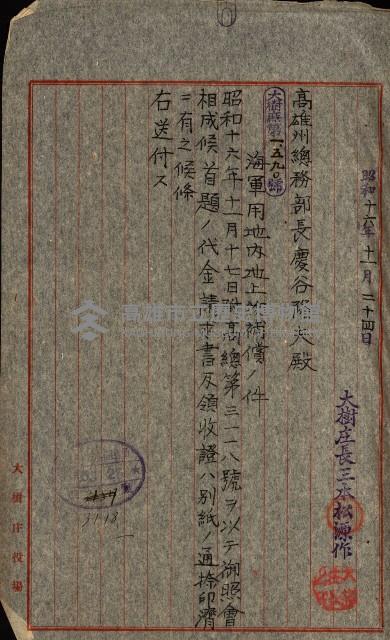 昭和十六年十一月二十四日
大樹庄長三本松源作
高雄州總務部長慶谷隆夫殿
大樹庶第一五九〇號
海軍用地內地上物補償ノ件
昭和十六年十一月十七日附高總第三一一八號ヲ以テ御照會
相成候首題ノ代金請求書及領收證ハ別紙ノ通捺印濟
ニ有之候條
右送付ス
大樹庄役場
高雄市立歷史博物館